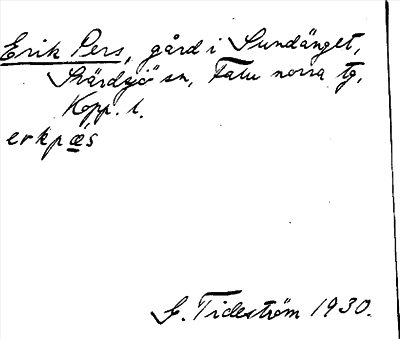 Erik Pers, gård i Sundänget,
Svärdsjö sn, Falu norra tg,
Kopp. l.
erkpæ̀s
G. Tideström 1930.